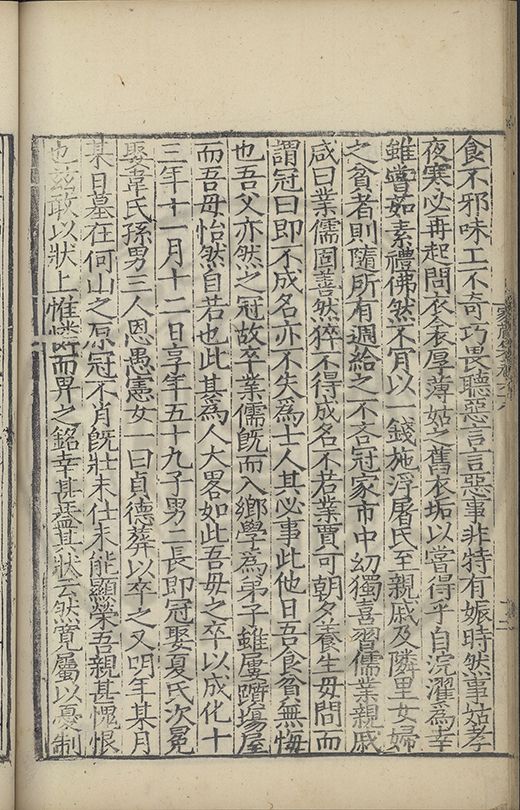 食不邪味工不奇巧畏聽惡言言惡事非特有娠時然事姑孝
夜寒必再起問衣衾厚薄姑之舊衣垢以嘗得乎自浣濯爲幸
雖嘗茹素禮佛然不肯以一錢施浮屠氏至親戚及隣里女婦
之貧者則隨所有週給之不吝冠家市中幼獨喜習儒業親戚
咸曰業儒固善然猝不得成名不若業賈可朝夕養生毋問而
謂冠曰即不成名亦不失爲士人其必事此他日吾食貧無悔
也吾父亦然之冠故卒業儒旣而入鄉學爲弟子雖屢躓塲屋
而吾母怡然自若也此其爲人大畧如此吾母之卒以成化十
三年十一月十二日享年五十九子男二長即冠娶夏氏次冕
娶韋氏孫男三人恩愚憲女一曰貞德葬以卒之又明年某月
某日墓在何山之原冠不肖旣壯未仕未能顯榮吾親甚愧恨
也兹敢以狀上惟憐而畀之銘幸甚盖其狀云然寛屬以憂制